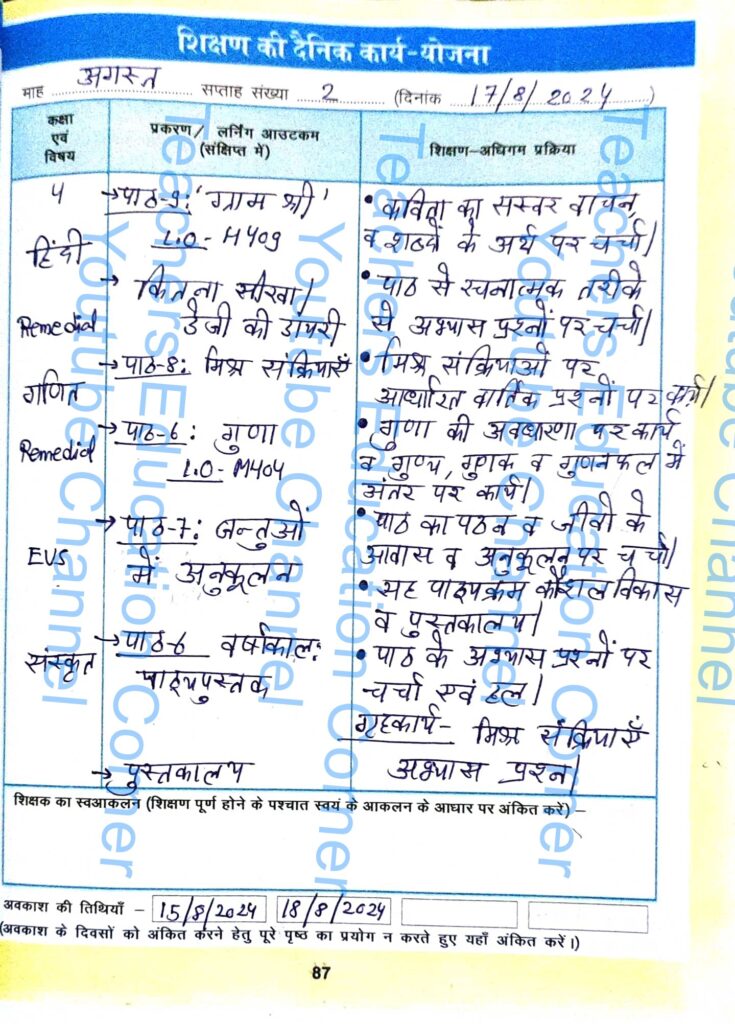 शिक्षण की दैनिक कार्य-योजना
माह अगस्त सप्ताह संख्या 2 (दिनांक 17/8/2024)
कक्षा एवं विषय
प्रकरण/ लर्निंग आउटकम (संक्षिप्त में)
शिक्षण-अधिगम प्रक्रिया
4
हिंदी
→ पाठ-9: 'ग्राम श्री'
L.O- H409
• कविता का सस्वर वाचन,
व शब्दों के अर्थ पर चर्चा।
Remedial
→ कितना सीखा।
डेजी की डायरी
• पाठ से रचनात्मक तरीके
से अभ्यास प्रश्नों पर चर्चा।
गणित
→ पाठ-8: मिश्र संक्रियाएँ
• मिश्र संक्रियाओं पर
आधारित वार्तिक प्रश्नों पर कार्य।
Remedial
→ पाठ-6: गुणा
L.O- M404
• गुणा की अवधारणा पर कार्य
व गुण्य, गुणक व गुणनफल में
अंतर पर कार्य।
EVS
→ पाठ-7: जन्तुओं
में अनुकूलन
• पाठ का पठन व जीवों के
आवास व अनुकूलन पर चर्चा।
• सह पाठ्यक्रम कौशल विकास
व पुस्तकालय।
संस्कृत
→ पाठ-6 वर्षाकाल:
पाठ्यपुस्तक
• पाठ के अभ्यास प्रश्नों पर
चर्चा एवं हल।
गृहकार्य- मिश्र संक्रियाएँ
अभ्यास प्रश्न।
→ पुस्तकालय
शिक्षक का स्वआकलन (शिक्षण पूर्ण होने के पश्चात स्वयं के आकलन के आधार पर अंकित करें) –
अवकाश की तिथियाँ – 15/8/2024 18/8/2024
(अवकाश के दिवसों को अंकित करने हेतु पूरे पृष्ठ का प्रयोग न करते हुए यहाँ अंकित करें।)
87
Teachers Education Corner
Youtube Channel
Teachers Education Corner
Youtube Channel
Teachers Education Corner
Youtube Channel